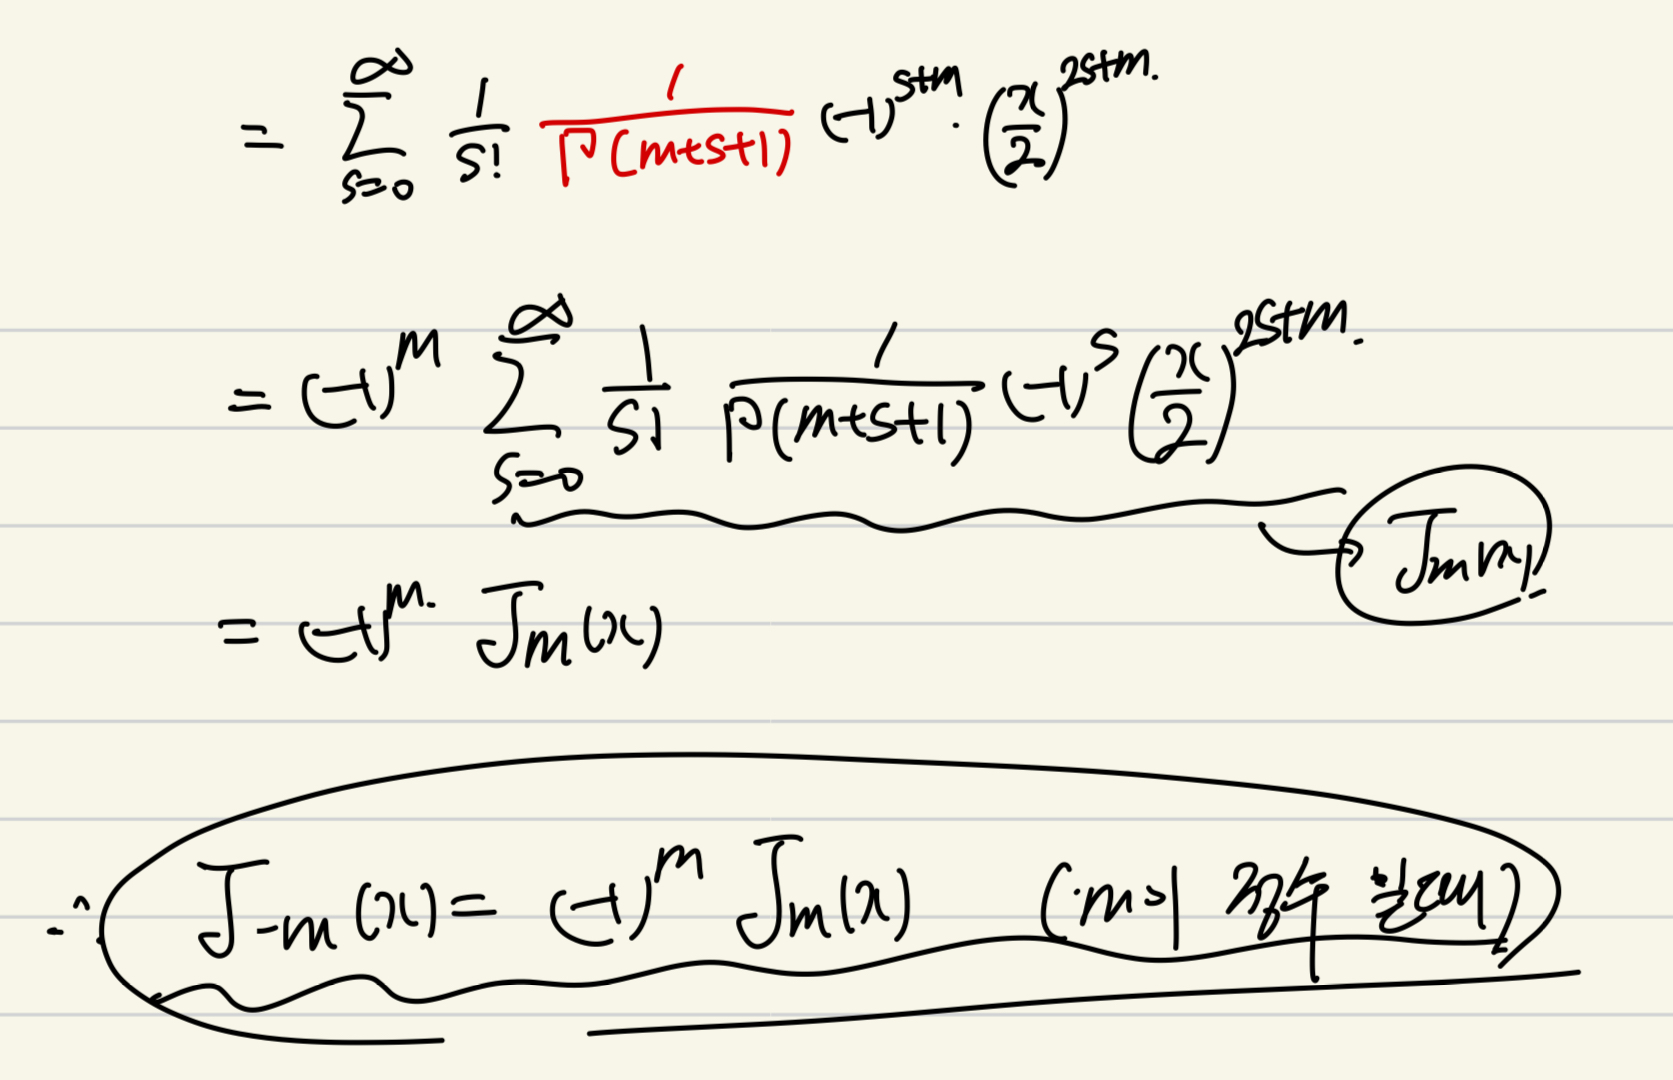 = ∑_{s=0}^{∞} 1/s! 1/Γ(m+s+1) (-1)^{s+m} · (x/2)^{2s+m}.
= (-1)^m ∑_{s=0}^{∞} 1/s! 1/Γ(m+s+1) (-1)^s (x/2)^{2s+m}.
→ J_m(x)
= (-1)^m · J_m(x)
∴ J_{-m}(x) = (-1)^m J_m(x) (m이 정수 일때)